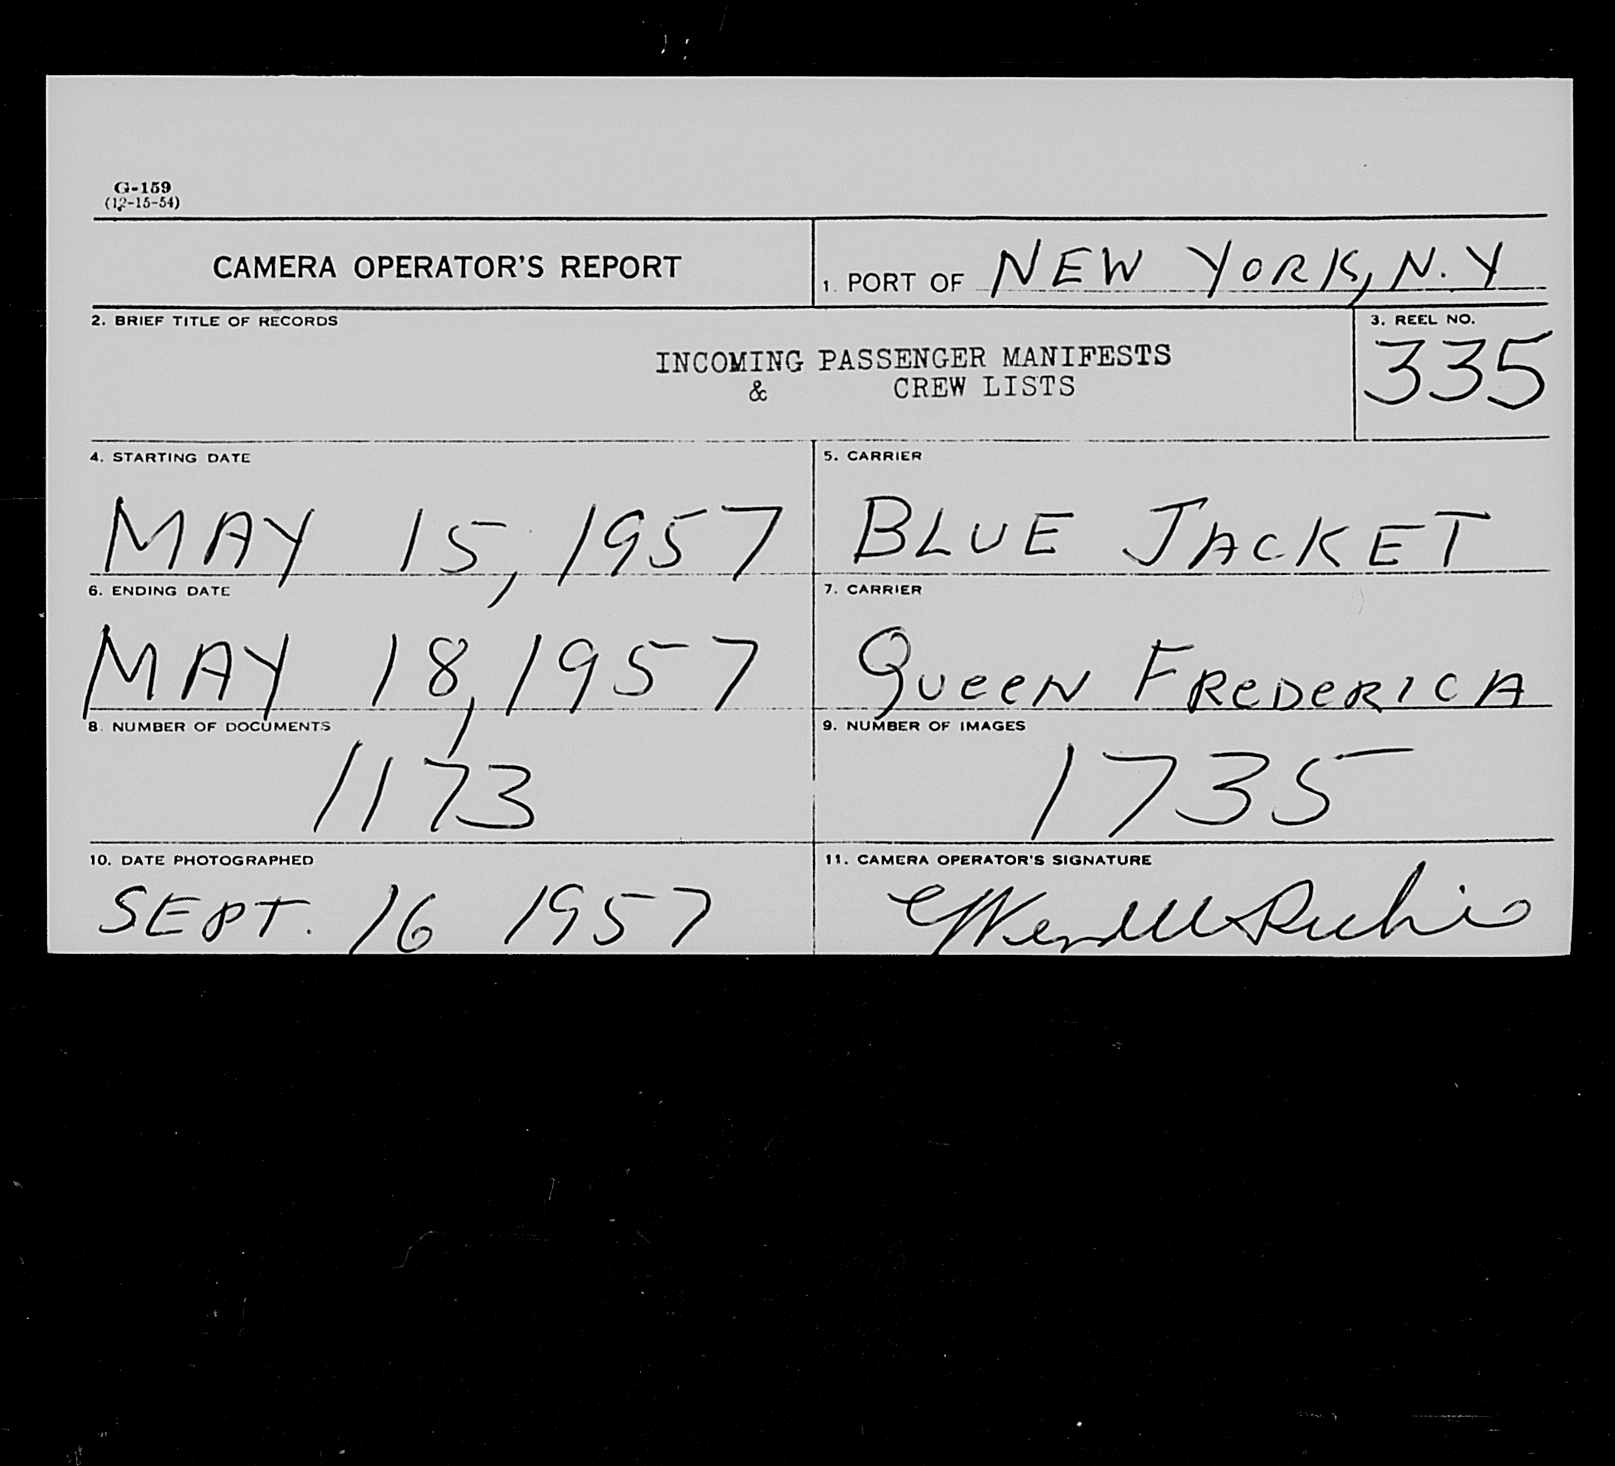 G-159
(12-15-54)
CAMERA OPERATOR'S REPORT
1. PORT OF NEW YORK, N.Y
2. BRIEF TITLE OF RECORDS
INCOMING PASSENGER MANIFESTS
& CREW LISTS
3. REEL NO.
335
4. STARTING DATE
MAY 15, 1957
5. CARRIER
BLUE JACKET
6. ENDING DATE
MAY 18, 1957
7. CARRIER
QUEEN FREDERICA
8. NUMBER OF DOCUMENTS
1173
9. NUMBER OF IMAGES
1735
10. DATE PHOTOGRAPHED
SEPT. 16 1957
11. CAMERA OPERATOR'S SIGNATURE